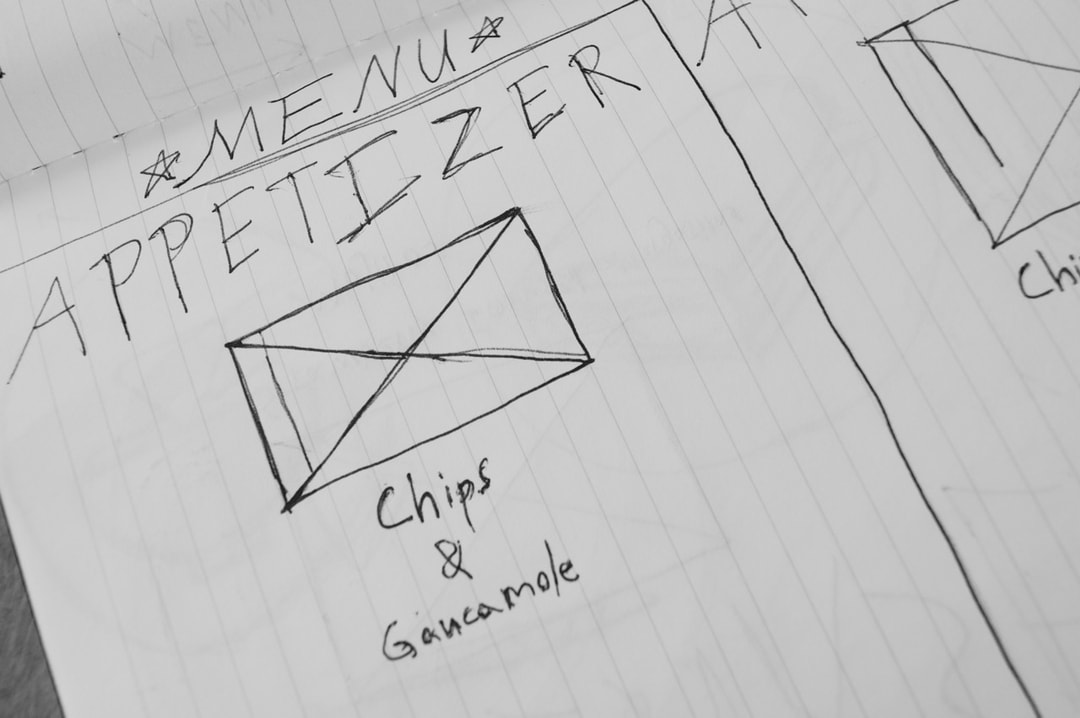 ☆MENU☆
APPETIZER
Chips
&
Gaucamole
A
Chi